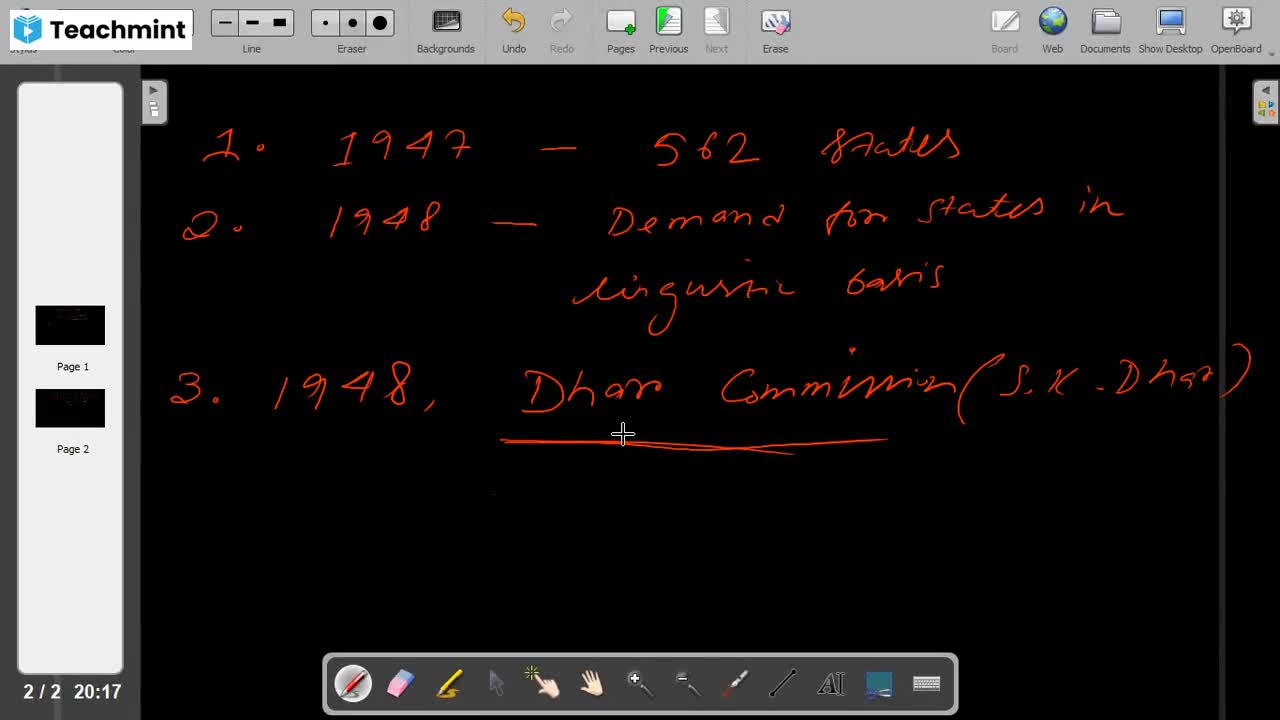 Teachmint
Line
Eraser
Backgrounds
Undo
Redo
Pages
Previous
Next
Erase
Board
Web
Documents
Show Desktop
OpenBoard
1. 1947 — 562 states
2. 1948 — Demand for states in
linguistic basis
3. 1948, Dhar Commission (S.K. Dhar)
Page 1
Page 2
2 / 2 20:17